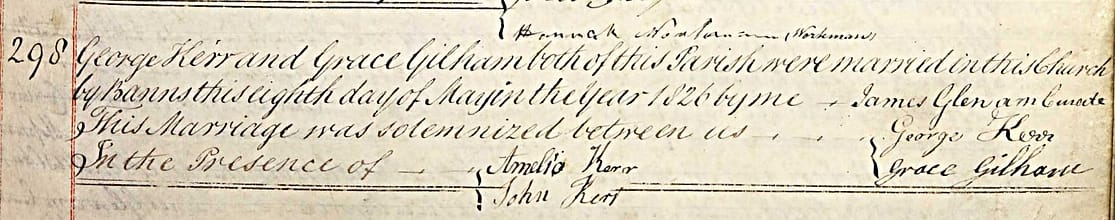 Hannah (Workman)
298 George Kerr and Grace Gilham both of this Parish were married in this Church
by Banns this eighth day of May in the Year 1826 by me James Glen am Curate
This Marriage was solemnized between us George Kerr
In the Presence of Amelia Kerr Grace Gilham
John Kerr